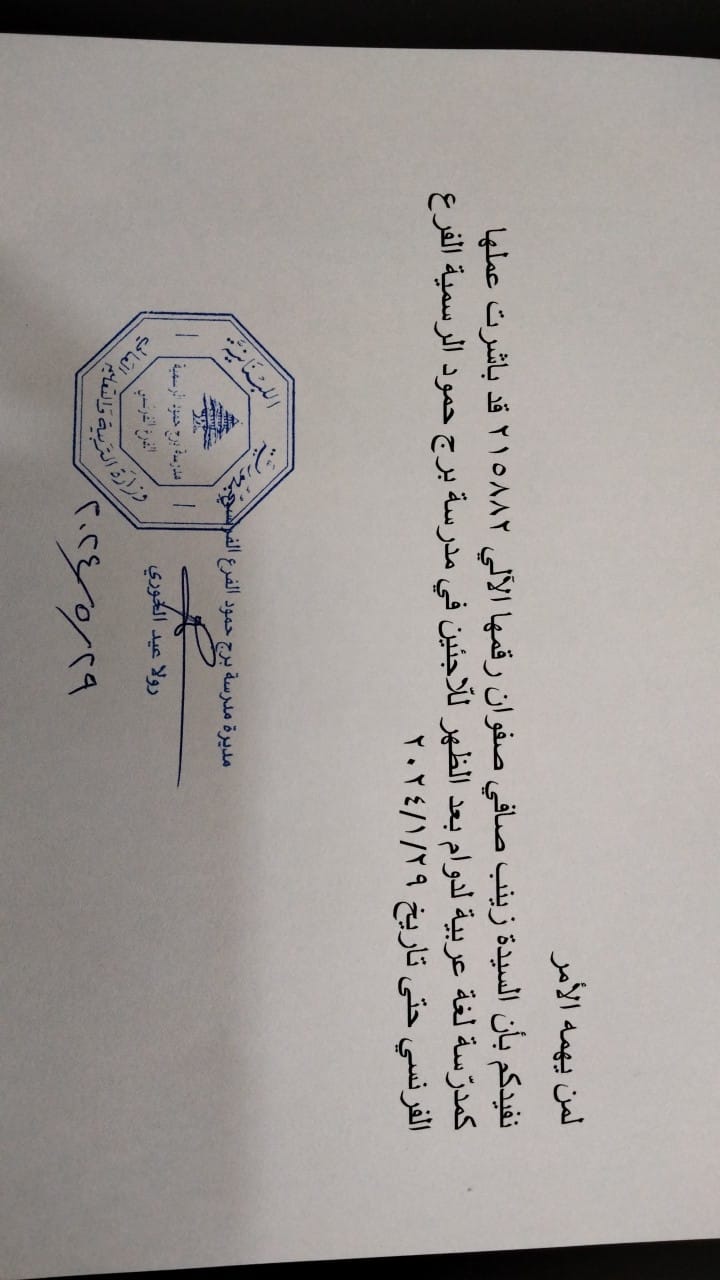 لمن يهمه الأمر
نفيدكم بأن السيدة زينب صافي صفوان رقمها الآلي ٢١٥٨٨٢ قد باشرت عملها
كمدرّسة لغة عربية لدوام بعد الظهر للّاجئين في مدرسة برج حمود الرسمية الفرع
الفرنسي حتى تاريخ ٢٠٢٤/١/٢٩
مديرة مدرسة برج حمود الفرع الفرنسي
رولا عيد الخوري
٢٠٢٤/٥/٢٩
الجمهورية اللبنانية
وزارة التربية والتعليم العالي
مدرسة برج حمود الرسمية
الفرع الفرنسي